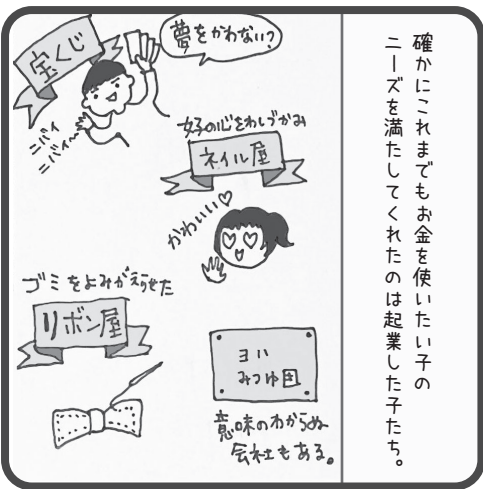 確かにこれまでもお金を使いたい子の
ニーズを満たしてくれたのは起業した子たち。
宝くじ
夢をかわない?
ニバイ
ニバイ〜
女子の心をわしづかみ
ネイル屋
かわいい♡
ゴミをよみがえらせた
リボン屋
ヨハ
みつゆ田
意味のわからぬ
会社もある。